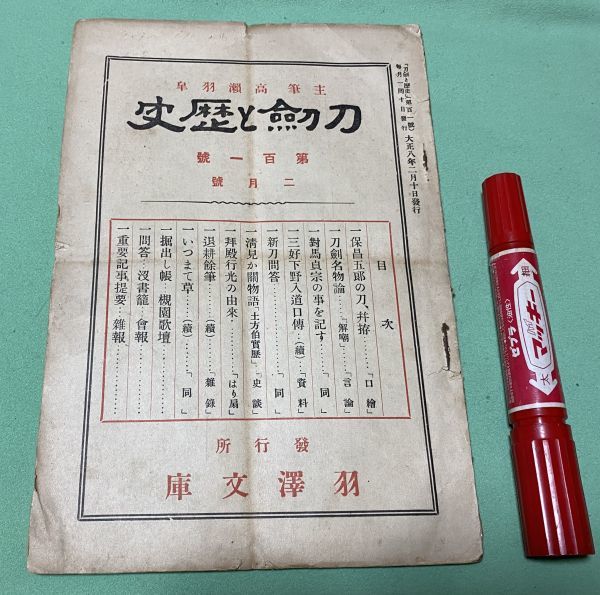 「刀劍と歴史」第百一號
毎月一回十日發行
大正八年二月十日發行
主筆高瀨羽皐
刀劍と歴史
第百一號
二月號
目次
一保昌五郎の刀、幷拵………「口繪」
一刀劍名物論……「解嘲」…「言論」
一對馬貞宗の事を記す………「同」
一三好下野入道口傳…(續)…「資料」
一新刀問答………「同」
一淸見か關物語「土方伯實歷」「史談」
一拜殿行光の由來………「はり扇」
一退耕餘筆………(續)………「雜錄」
一いつまて草……(續)……「同」
一掘出し帳…槻園歌壇
一問答…沒書籠…會報
一重要記事提要…雜報
發行所
羽澤文庫
細
マッキー
ゼブラ
太